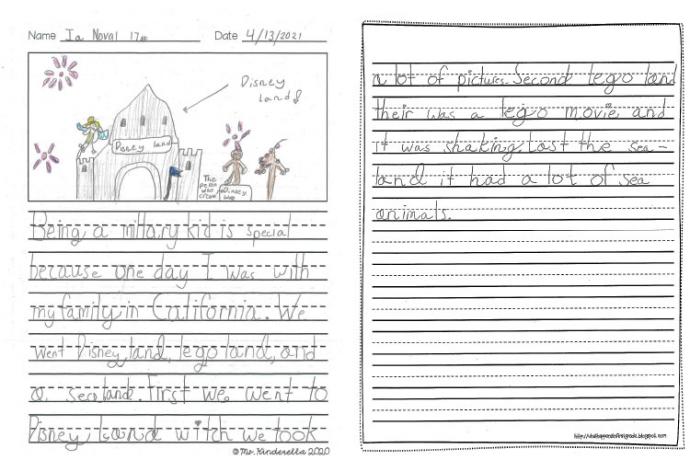 Name Ia Noval Date 4/13/2021
Disney
Land!
Disney land
The
Disney
Being a millary kid is special
because one day I was with
my family in California. We
went Disney land, lego land, and
a sea lande. First we went to
Disney Land witch we took
©Ms. Kinderella 2020
a lot of pictures. Second lego land
their was a lego movie, and
it was shaking. Last the sea-
land it had a lot of sea
animals.